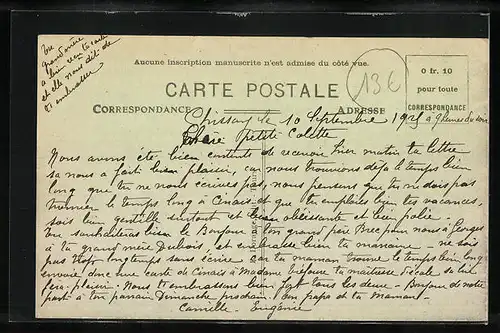 Ton
grand'mère
a bien reçu ta carte
et elle nous dit de
t'embrasser
Aucune inscription manuscrite n'est admise du côté vue.
13€
0 fr. 10
pour toute
CORRESPONDANCE
CARTE POSTALE
CORRESPONDANCE
ADRESSE
le 10 Septembre 1925 à 9 heures du soir
Chère petite Colette
Nous avons été bien contents de recevoir hier matin ta lettre
sa nous a fait bien plaisir, car nous trouvions déjà le temps bien
long que tu ne nous écrives pas, nous pensons que tu ne dois pas
trouver le temps long à Cinais et que tu emploies bien tes vacances,
sois bien gentille surtout et bien obéissante et bien polie.
Tu souhaiteras bien le Bonjour à ton grand père Bree pour nous à Georges
à ta grand mère Dubois, et embrasse bien ta marraine - ne sois
pas trop longtemps sans écrire car ta maman trouve le temps bien long
envoie donc une carte de Cinais à Madame ta maitresse d'école sa lui
fera plaisir. Nous t'embrassons bien fort tous les deux - Bonjour de notre
part à ton parrain Dimanche prochain. Ton papa et ta Maman.
Camille - Eugénie